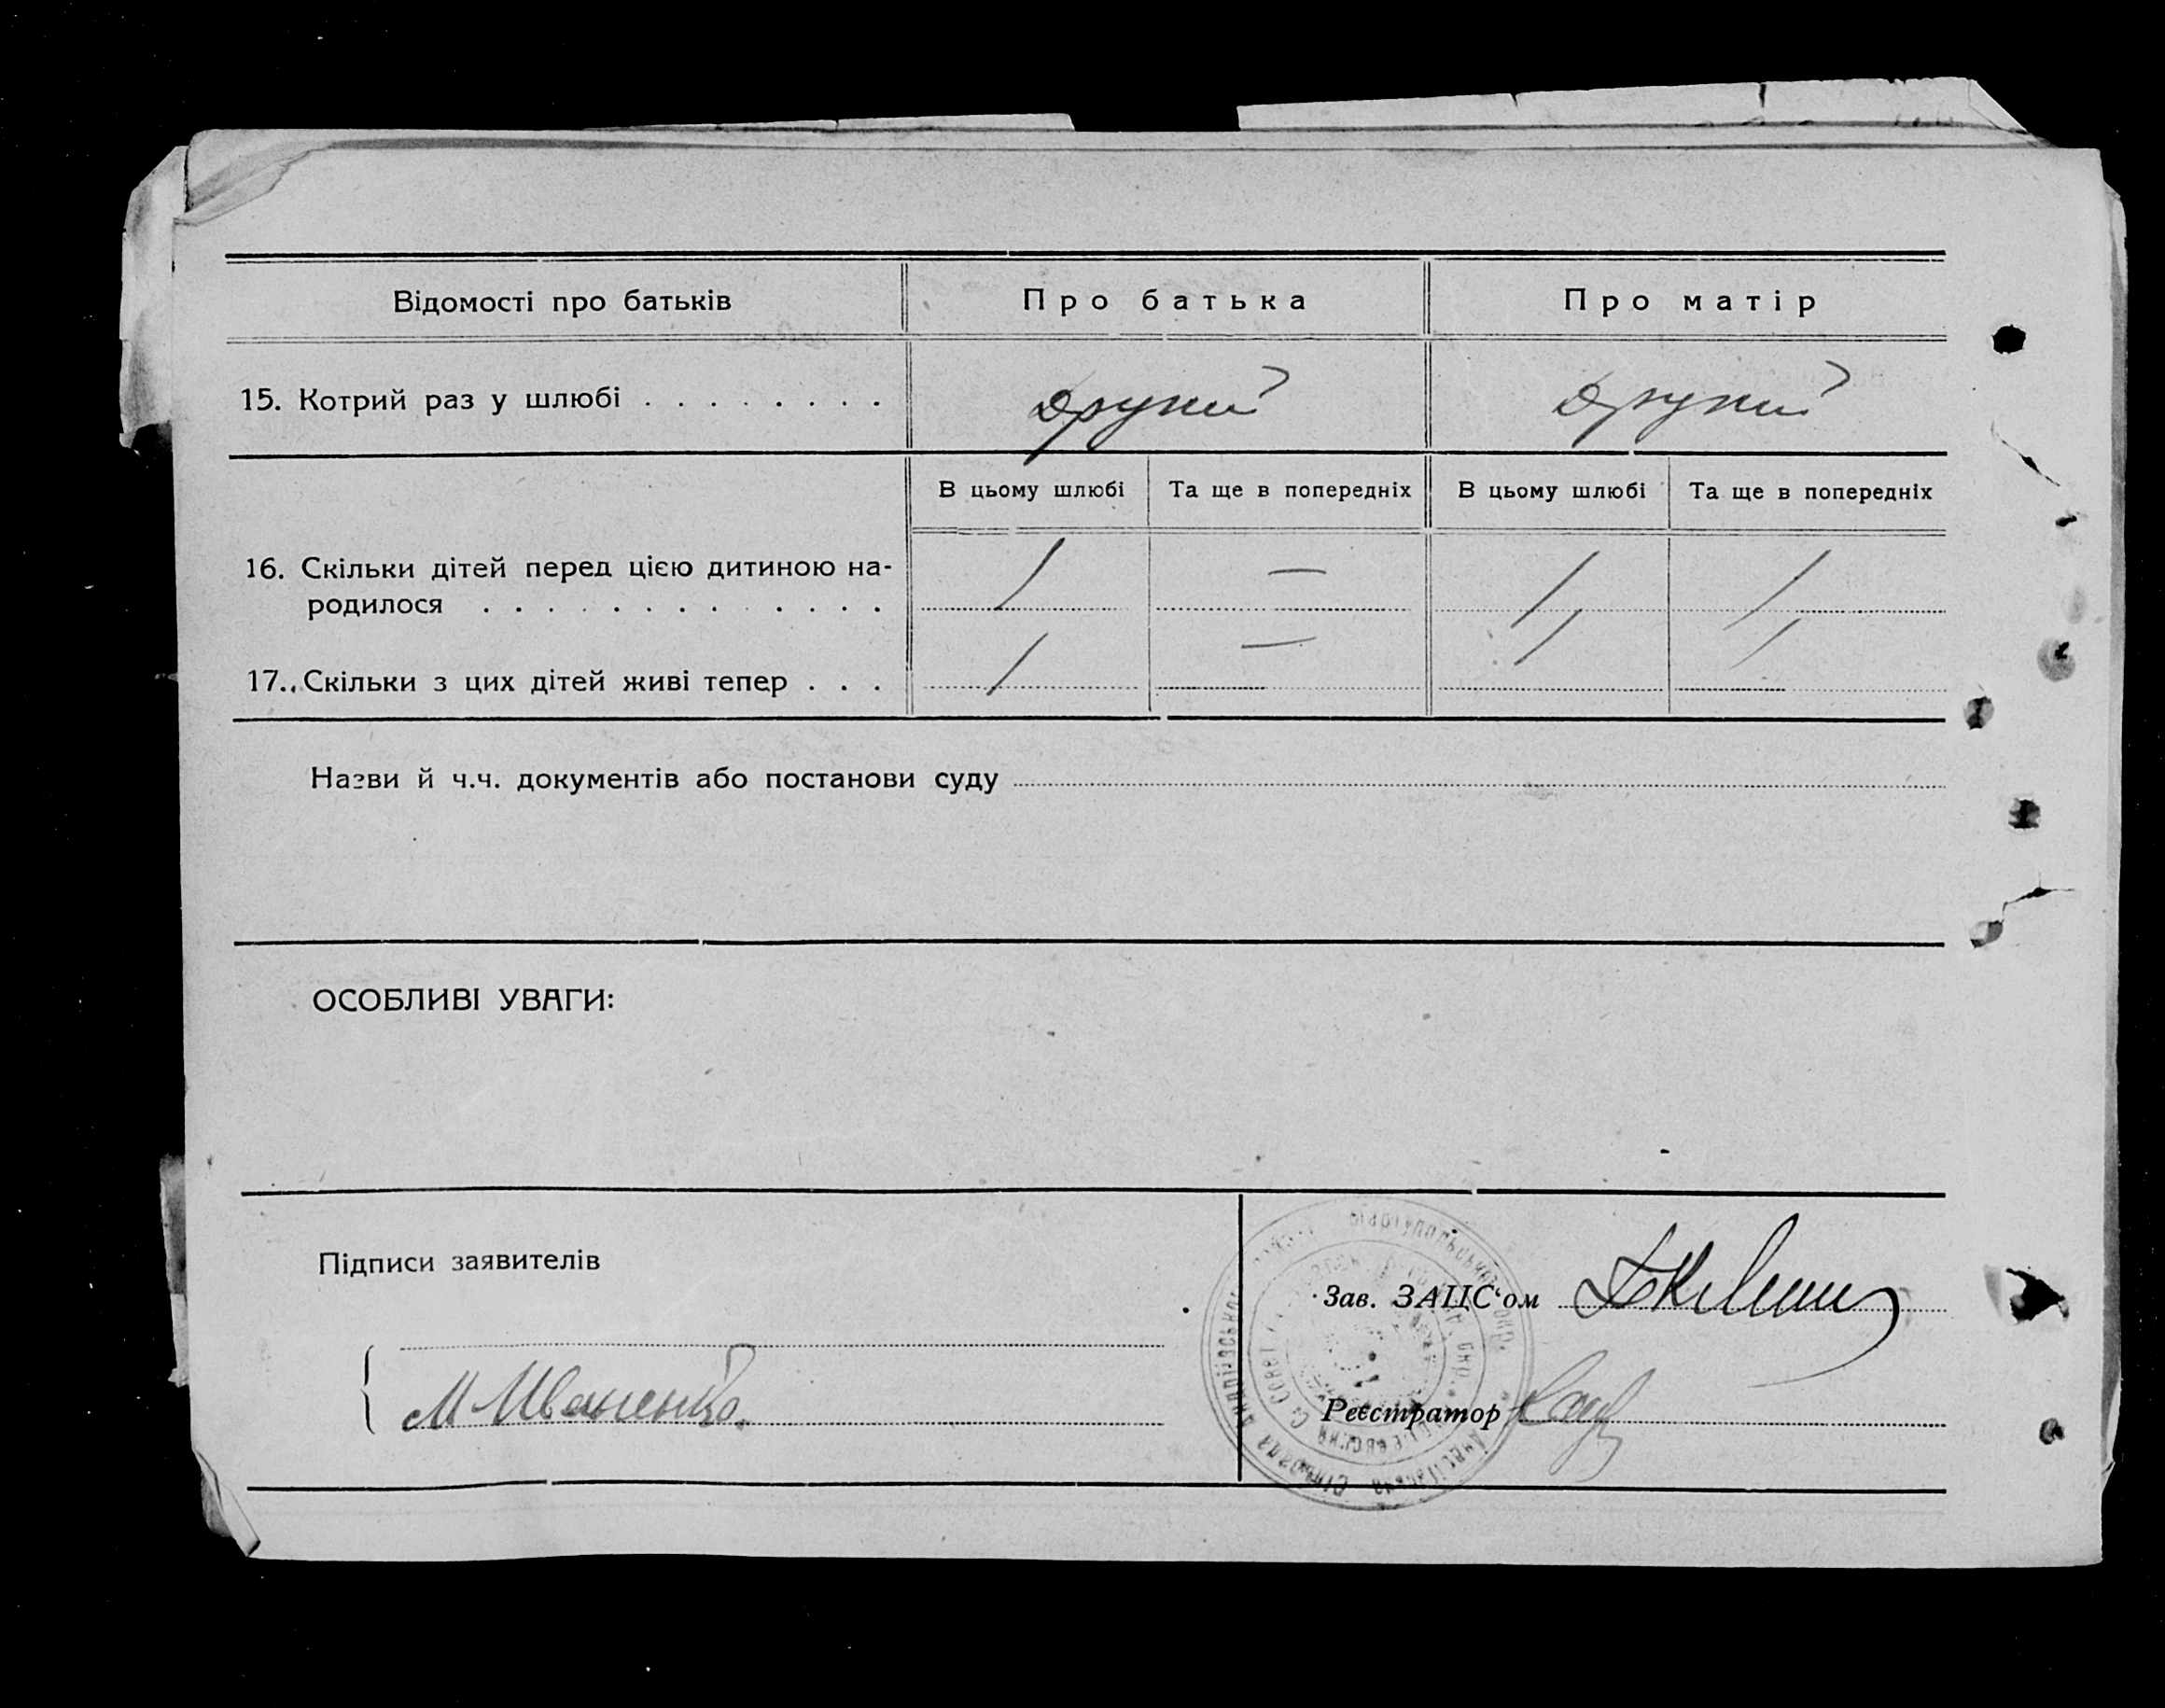 Відомості про батьків
Про батька
Про матір
15. Котрий раз у шлюбі . . . . . . . .
другий
другий
В цьому шлюбі
Та ще в попередніх
В цьому шлюбі
Та ще в попередніх
16. Скільки дітей перед цією дитиною на-
родилося . . . . . . . . . . . . .
1
—
1
1
17. Скільки з цих дітей живі тепер . . .
1
—
1
1
Назви й ч.ч. документів або постанови суду
ОСОБЛИВІ УВАГИ:
Підписи заявителів
М Иваненко.
Зав. ЗАЦС'ом
Реєстратор